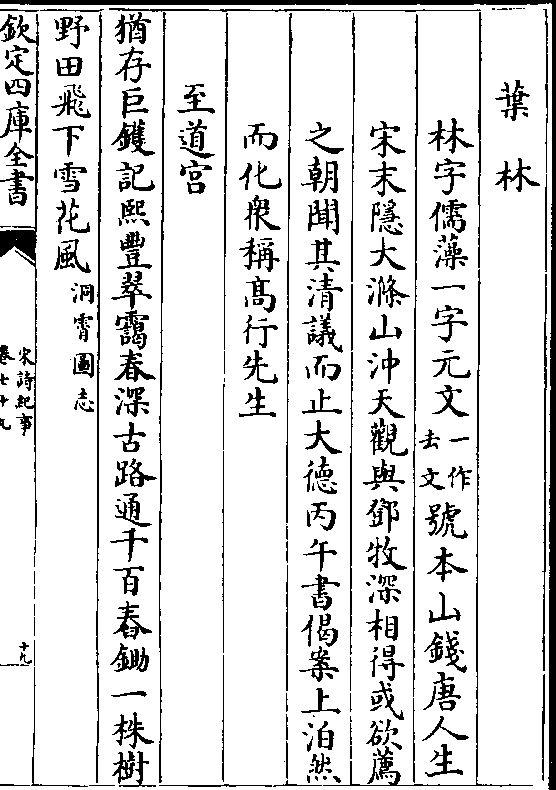 葉林
林字儒藻一字元文一作去文號本山錢唐人生
宋末隱大滌山沖天觀與鄧牧深相得或欲薦
之朝聞其清議而止大德丙午書偈案上泊然
而化衆稱髙行先生
至道宮
猶存巨鑊記熙豐翠靄春深古路通千百舂鋤一株樹
野田飛下雪花風洞霄圖志
欽定四庫全書
宋詩紀事
卷七十九
十九